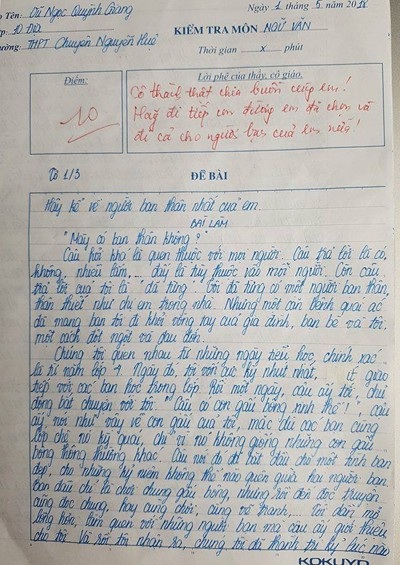 Họ Tên: Cù Ngọc Quỳnh Giang
Lớp: 10 Địa
Trường: THPT Chuyên Nguyễn Huệ
Ngày 1 tháng 5 năm 2018
KIỂM TRA MÔN NGỮ VĂN
Thời gian x phút
Điểm:
10
Lời phê của thầy, cô giáo
Cô thành thật chia buồn cùng em!
Hãy đi tiếp con đường em đã chọn và
đi cả cho người bạn của em nữa!
Tờ 1/3
ĐỀ BÀI
Hãy kể về người bạn thân nhất của em
BÀI LÀM
"Mày có bạn thân không?"
Câu hỏi khá là quen thuộc với mọi người. Câu trả lời là có,
không, nhiều lắm,... đấy là tùy thuộc vào mỗi người. Còn câu
trả lời của tôi là "đã từng". Tôi đã từng có một người bạn thân,
thân thiết như chị em trong nhà. Nhưng một căn bệnh quái ác
đã mang bạn tôi đi khỏi vòng tay của gia đình, bạn bè và tôi
một cách đột ngột và đau đớn.
Chúng tôi quen nhau từ những ngày tiểu học, chính xác
là từ năm lớp 4. Ngày đó, tôi vốn cực kỳ nhút nhát, ít giao
tiếp với các bạn học trong lớp. Rồi một ngày, cậu ấy tới, chủ
động bắt chuyện với tôi: "Cậu có con gấu bông xinh thế!", cậu
ấy nói như vậy về con gấu của tôi, mặc dù các bạn cùng
lớp chê nó kỳ quái, chỉ vì nó không giống những con gấu
bông thông thường khác. Câu nói đó đã bắt đầu cho một tình bạn
đẹp, cho những kỷ niệm không thể nào quên giữa hai người bạn.
Ban đầu chỉ là chơi chung gấu bông, nhưng rồi đổi đọc truyện
cũng đọc chung, hay cùng chơi, cùng vẽ tranh,... Tôi dần mở
lòng hơn, làm quen với những người bạn mà cậu ấy giới thiệu
cho tôi. Và rồi tôi nhận ra, chúng tôi đã thành tri kỷ lúc nào
KOKUYO